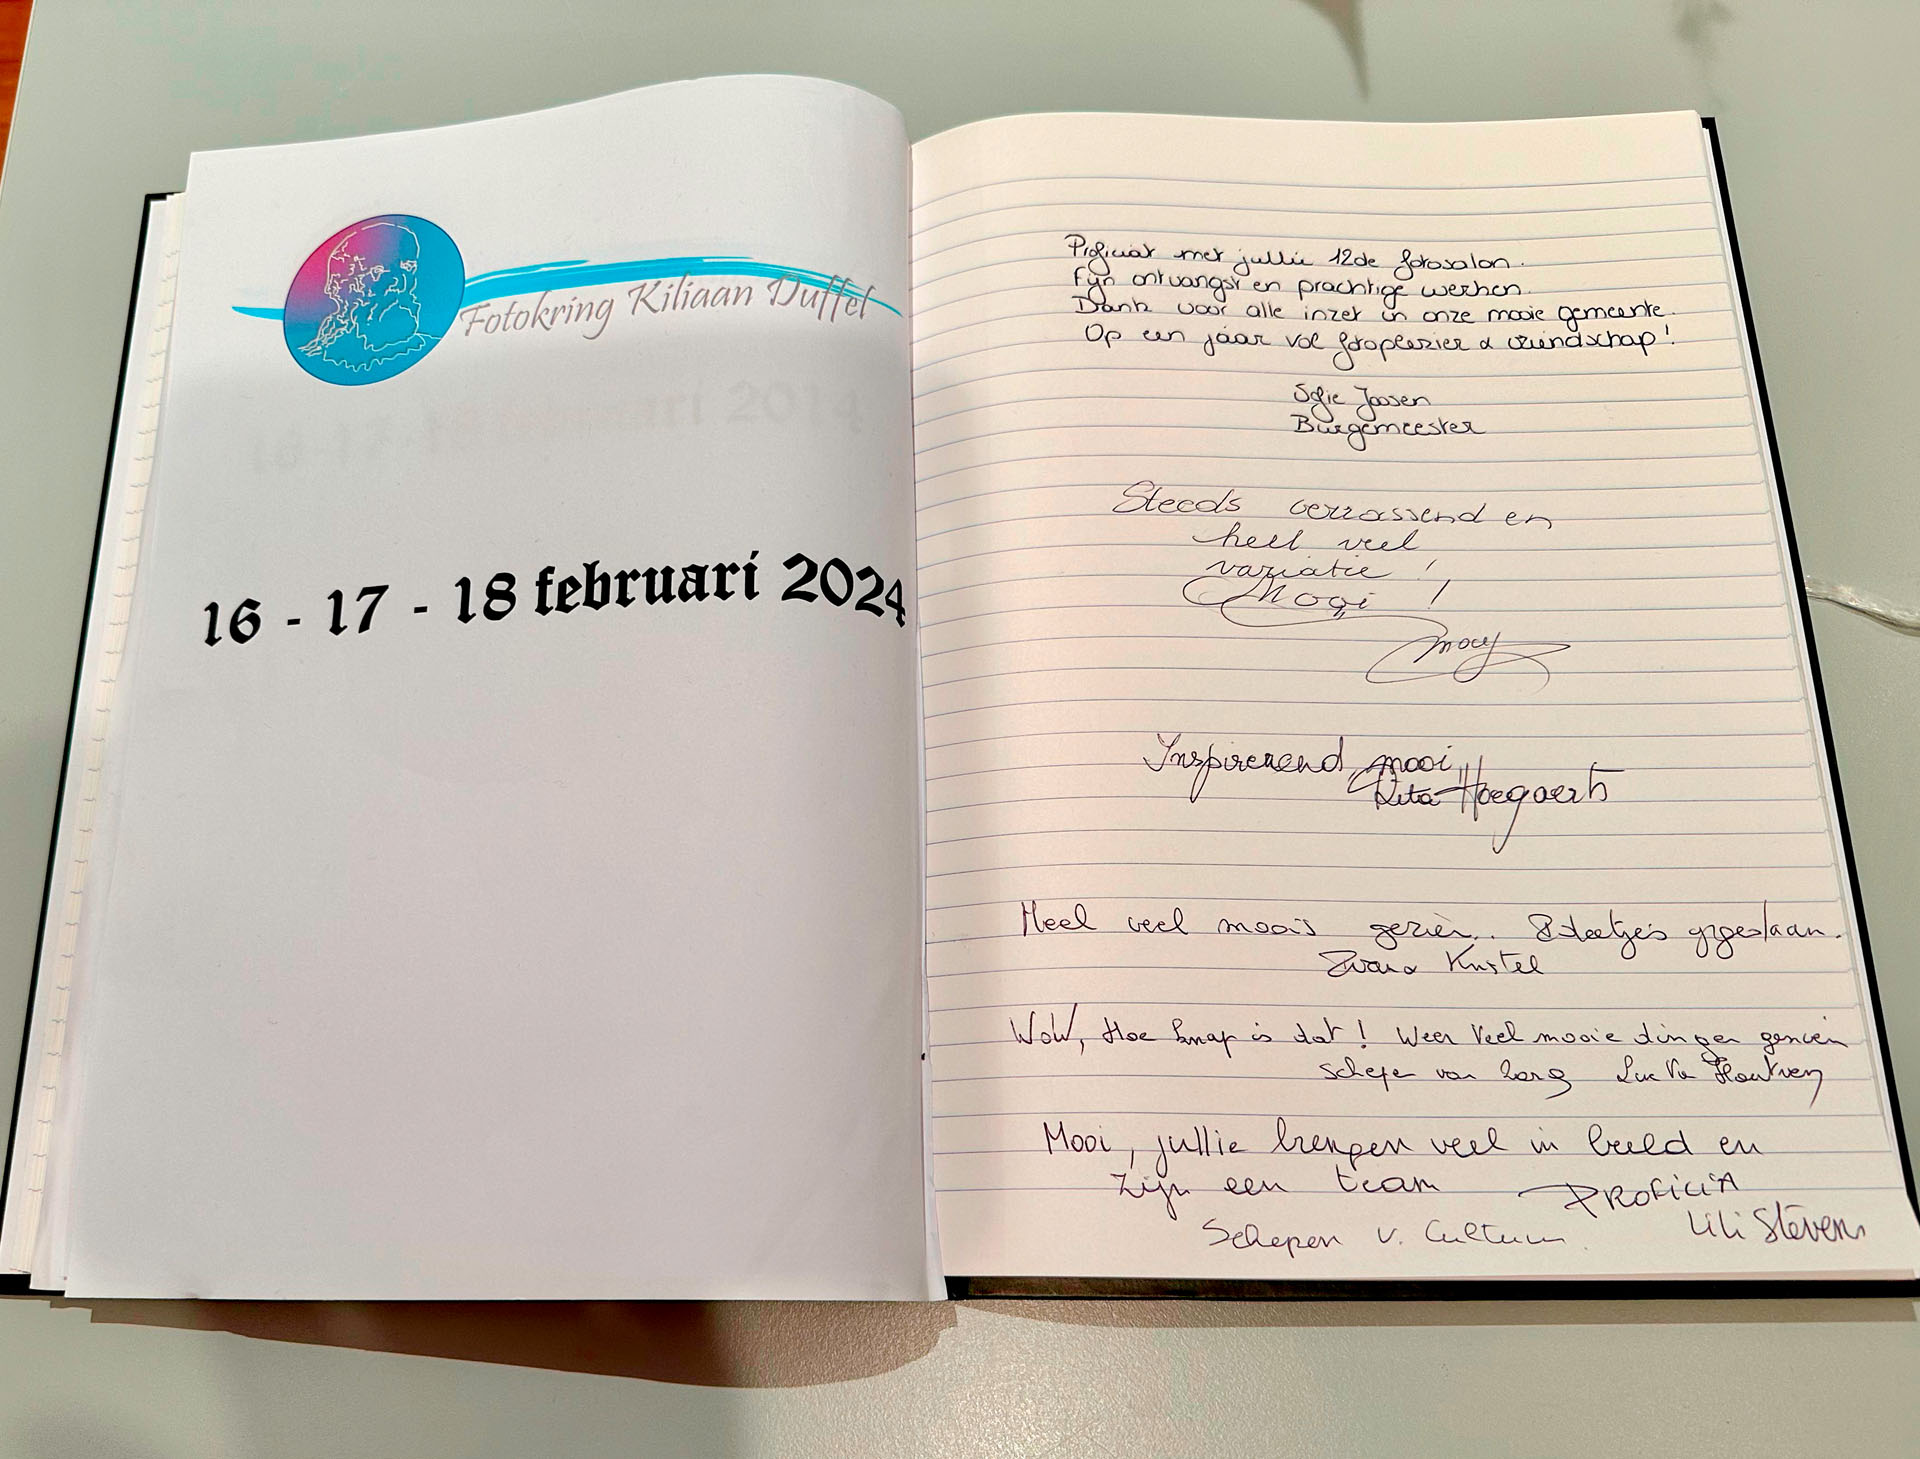 Fotokring Kiliaan Duffel
16 - 17 - 18 februari 2024
Proficiat met jullie 12de fotosalon.
Fijn ontvangst en prachtige werken.
Dank voor alle inzet in onze mooie gemeente.
Op een jaar vol fotoplezier & vriendschap!
Sofie Joosen
Burgemeester
Steeds verrassend en
heel veel
variatie !
Mooi !
Inspirerend mooi,
Rita Hoegaerts
Heel veel moois gezien.
Kristel
WoW, Hoe knap is dat ! Weer veel mooie dingen gezien
Schepen van Zorg Luc Van Houtven
Mooi, jullie brengen veel in beeld en
zijn een team PROFICIA
Schepen v. Cultuur Lili Stevens